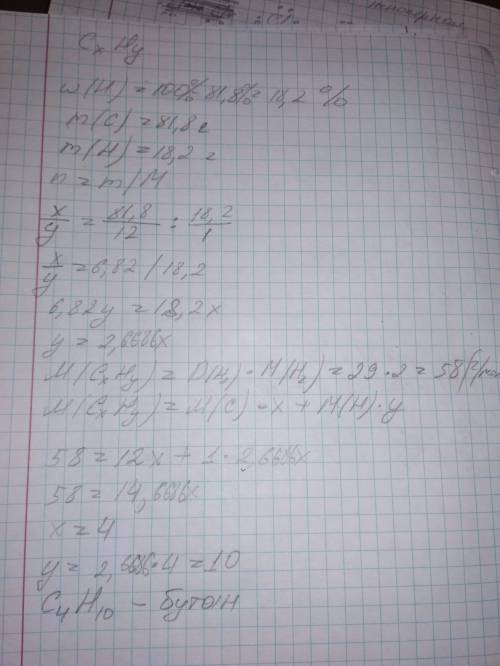 CxHy
w(H) = 100% - 81,8% = 18,2 %
m(C) = 81,8 г
m(H) = 18,2 г
n = m/M
x/y = 81,8/12 : 18,2/1
x/y = 6,82 / 18,2
6,82y = 18,2x
y = 2,6686x
M(CxHy) = D(H2) · M(H2) = 29 · 2 = 58 (г/мол
M(CxHy) = M(C) · x + M(H) · y
58 = 12x + 1 · 2,6686x
58 = 14,6686x
x = 4
y = 2,6686 · 4 = 10
C4H10 - бутан